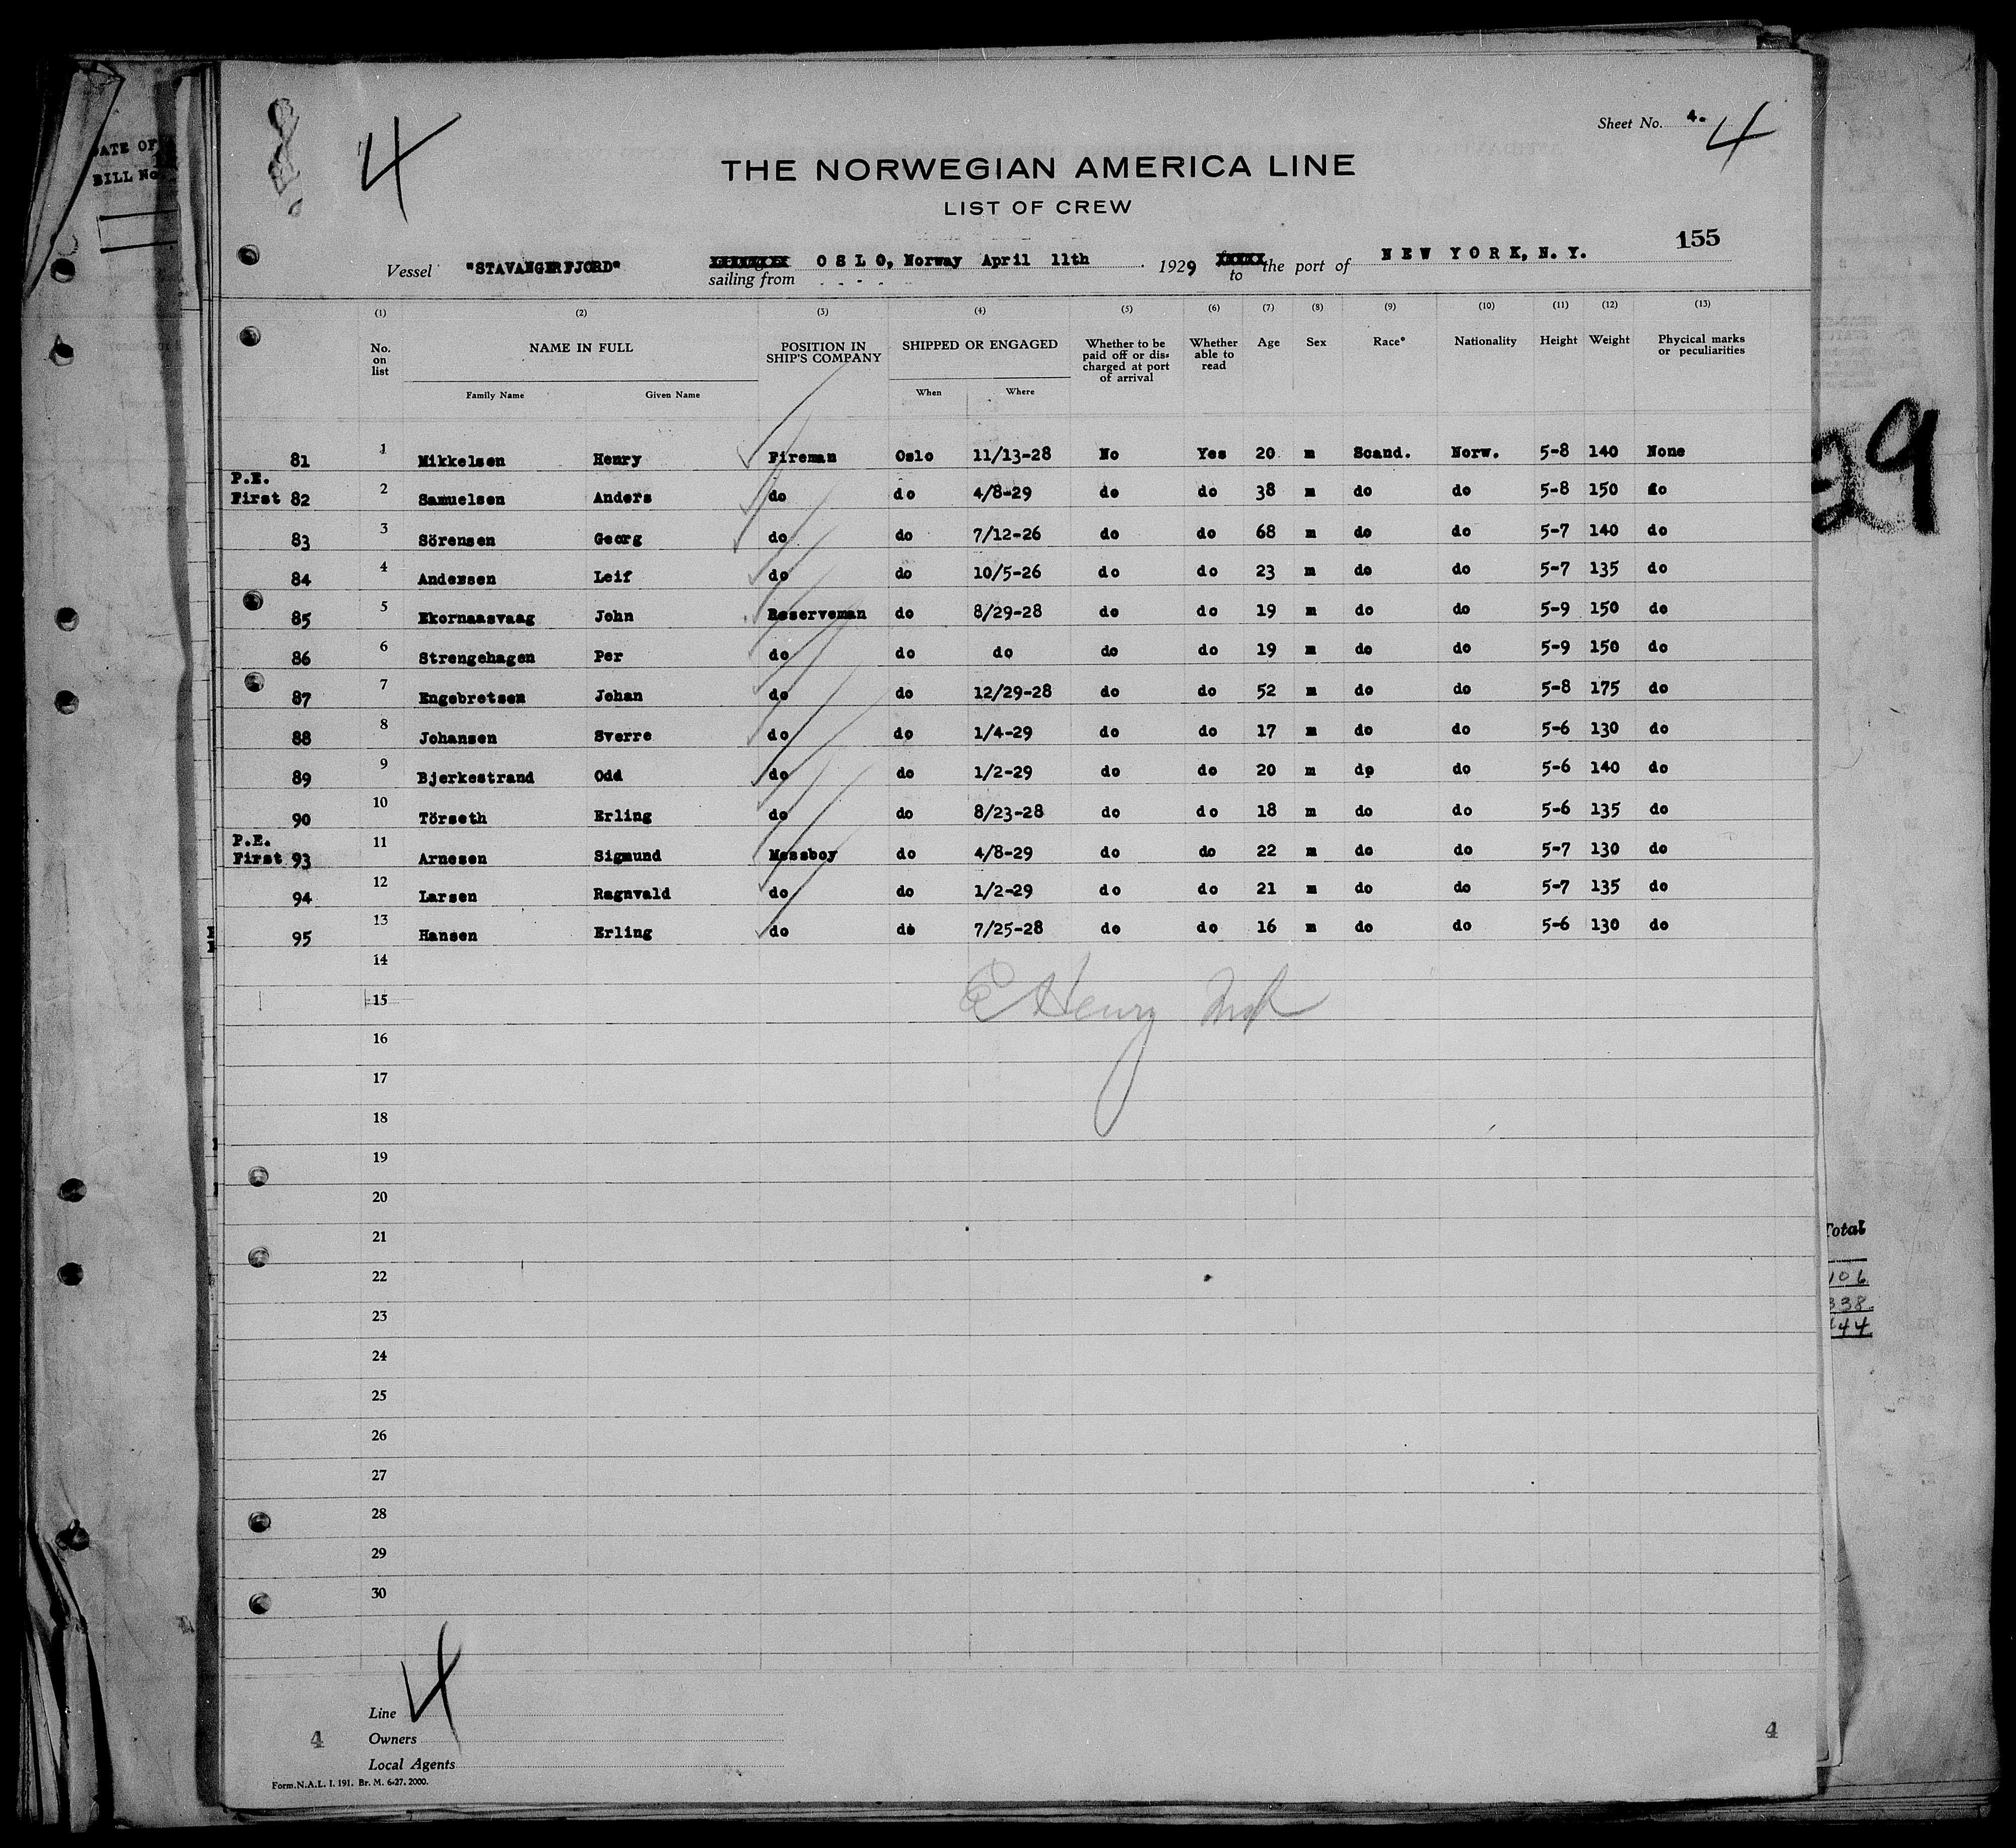 DATE OF
BILL No
4
Sheet No. 4. 4
THE NORWEGIAN AMERICA LINE
LIST OF CREW
155
Vessel "STAVANGERFJORD" sailing from O S L O, Norway April 11th 1929 to the port of N E W Y O R K, N. Y.
(1) (2) (3) (4) (5) (6) (7) (8) (9) (10) (11) (12) (13)
No. on list NAME IN FULL POSITION IN SHIP'S COMPANY SHIPPED OR ENGAGED Whether to be paid off or dis-charged at port of arrival Whether able to read Age Sex Race* Nationality Height Weight Phycical marks or peculiarities
Family Name Given Name When Where
81 1 Mikkelsen Henry Fireman Oslo 11/13-28 No Yes 20 m Scand. Norw. 5-8 140 None
P.E.
First 82 2 Samuelsen Anders do do 4/8-29 do do 38 m do do 5-8 150 do
83 3 Sörensen Georg do do 7/12-26 do do 68 m do do 5-7 140 do
84 4 Andersen Leif do do 10/5-26 do do 23 m do do 5-7 135 do
85 5 Ekornaasvaag John Reserveman do 8/29-28 do do 19 m do do 5-9 150 do
86 6 Strengehagen Per do do do do do 19 m do do 5-9 150 do
87 7 Engebretsen Johan do do 12/29-28 do do 52 m do do 5-8 175 do
88 8 Johansen Sverre do do 1/4-29 do do 17 m do do 5-6 130 do
89 9 Bjerkestrand Odd do do 1/2-29 do do 20 m do do 5-6 140 do
90 10 Törseth Erling do do 8/23-28 do do 18 m do do 5-6 135 do
P.E.
First 93 11 Arnesen Sigmund Messboy do 4/8-29 do do 22 m do do 5-7 130 do
94 12 Larsen Ragnvald do do 1/2-29 do do 21 m do do 5-7 135 do
95 13 Hansen Erling do do 7/25-28 do do 16 m do do 5-6 130 do
14
15
E Henry
16
17
18
19
20
21
22
23
24
25
26
27
28
29
30
29
Total
106
338
444
4
Line
4 Owners 4
Local Agents
Form.N.A.L. I. 191. Br. M. 6-27. 2000.